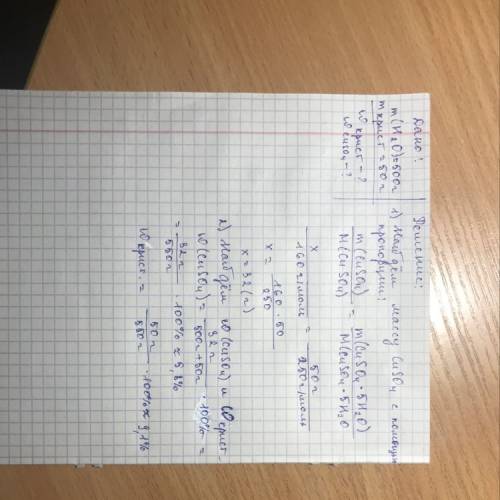 Дано:
m(H₂O)=500г
m крист = 50г
ω крист - ?
ω CuSO₄ - ?
Решение:
1) Найдём массу CuSO₄ с помощью
пропорции:
m(CuSO₄) / M(CuSO₄) = m(CuSO₄·5H₂O) / M(CuSO₄·5H₂O
x / 160 г/моль = 50г / 250 г/моль
x = 160·50 / 250
x = 32 (г)
2) Найдём ω(CuSO₄) и ω крист.
ω(CuSO₄) = 32г / 500г+50г · 100% =
= 32г / 550г · 100% ≈ 5,8%
ω крист = 50г / 550г · 100% ≈ 9,1%